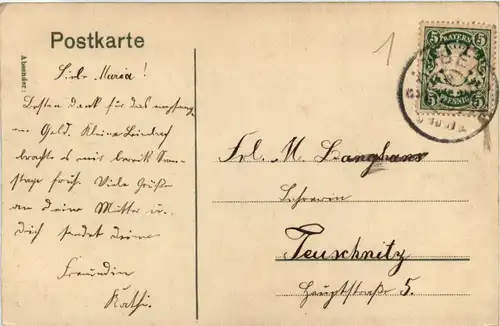 Postkarte
1
Absender:
Liebe Maria!
Besten Dank für das
Geld. Kleine
brachte es mir bereits
früh. Viele Grüße
an deine Mutter u.
Dich sendet deine
Freundin
Kathi.
5 BAYERN 5
5 PFENNIG 5
Frl. M. Langhans
Lehrerin
Teuschnitz
Hauptstraße 5.